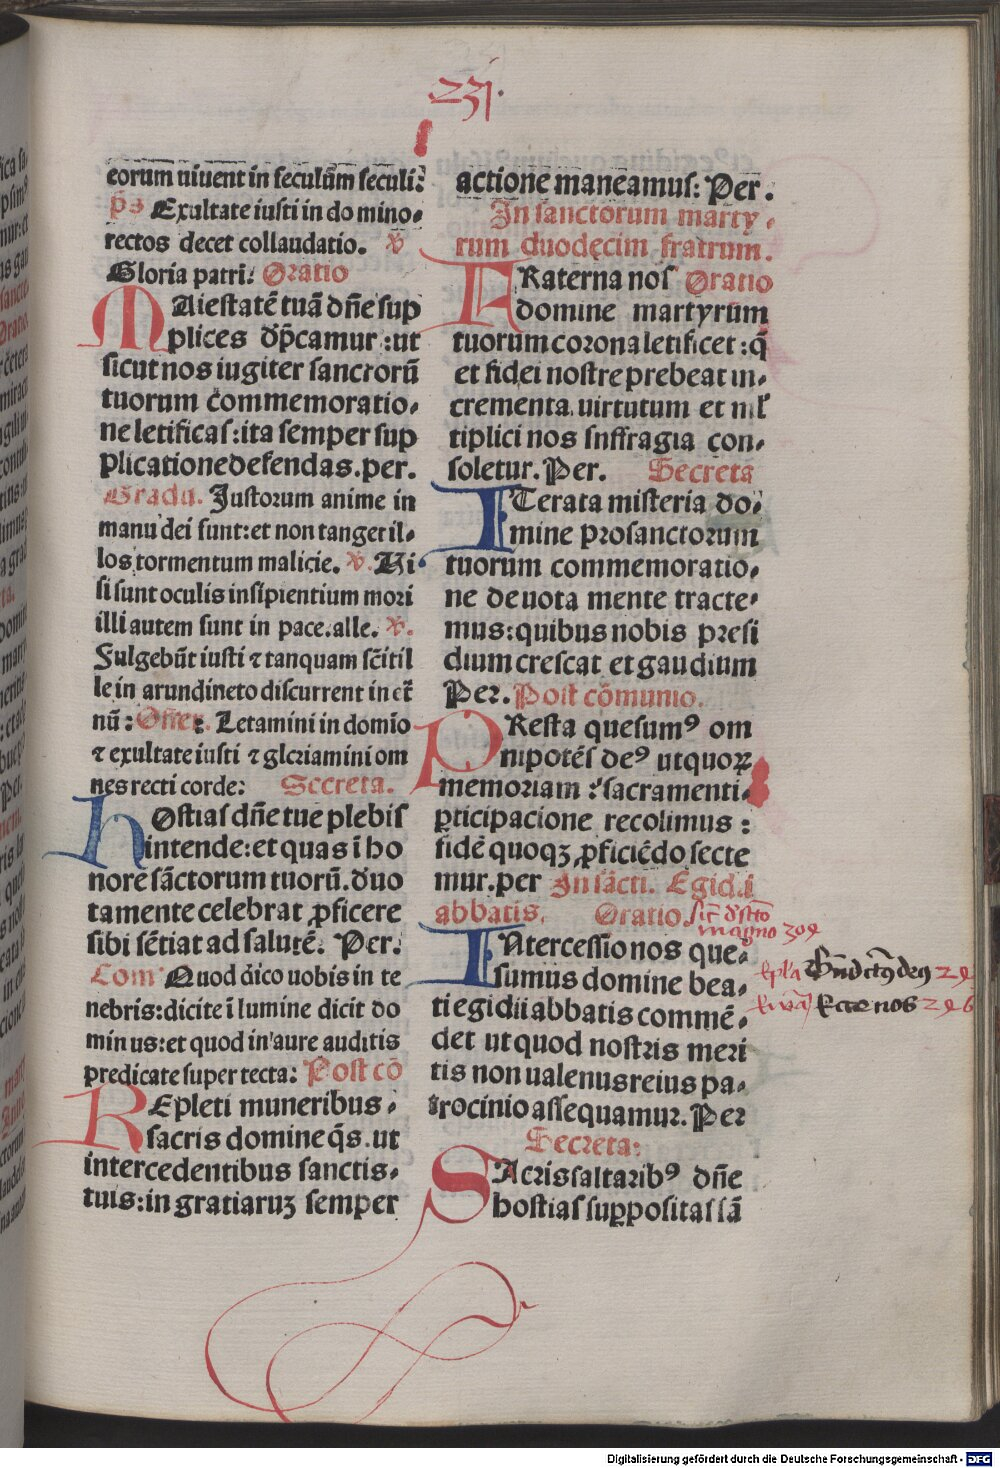 231.
eorum uiuent in seculũm seculi:
p̃s Exultate iusti in do mino.
rectos decet collaudatio. ℣
Gloria patri: Oratio
MAiestatẽ tuã dñe sup
plices dp̃camur :ut
sicut nos iugiter sanctorũ
tuorum commemoratio.
ne letificas:ita semper sup
plicatione defendas.per.
Gradu. Iustorum anime in
manu dei sunt:et non tanget il.
los tormentum malicie. ℣. Ui
si sunt oculis insipientium mori
illi autem sunt in pace.alle. ℣.
Fulgebũt iusti ⁊ tanquam scĩtil
le in arundineto discurrent in et̃
nũ : Offer. Letamini in domĩo
⁊ exultate iusti ⁊ gloriamini om
nes recti corde: Secreta.
hOstias dñe tue plebis
intende:et quas ĩ ho
nore sãctorum tuorũ.duo
tamente celebrat ꝓficere
sibi sẽtiat ad salutẽ. Per.
Com̃ Quod dico uobis in te
nebris:dicite ĩ lumine dicit do
min us:et quod in aure auditis
predicate super tecta: Post cõ
REpleti muneribus.
sacris domine q̃s. ut
intercedentibus sanctis.
tuis:in gratiaruꝫ semper
actione maneamus: Per.
In sanctorum marty.
rum duodecim fratrum.
FRaterna nos Oratio
domine martyrũm
tuorum corona letificet :q̃
et fidei nostre prebeat in.
crementa uirtutum et ml̃
tiplici nos snffragia con.
soletur. Per. Secreta
ITerata misteria do.
mine pro sanctorum
tuorum commemoratio.
ne deuota mente tracte.
mus:quibus nobis presi
dium crescat et gaudium
Per. Post cõmunio.
PResta quesumꝰ om
nipotẽs deꝰ ut quoꝝ
memoriam : sacramenti.
ꝑticipacione recolimus :
fidẽ quoqꝫ ꝓficiẽdo secte
mur.per In sãcti. Egidii
abbatis. Oratio.
INtercessio nos que.
sumus domine bea.
ti egidii abbatis commẽ.
det ut quod nostris meri
tis non ualenus eius pa.
trocinio assequamur. Per
Secreta:
SAcris altaribꝰ dñe
hostias supꝑpositas sã
magno 309
ep̃la
296